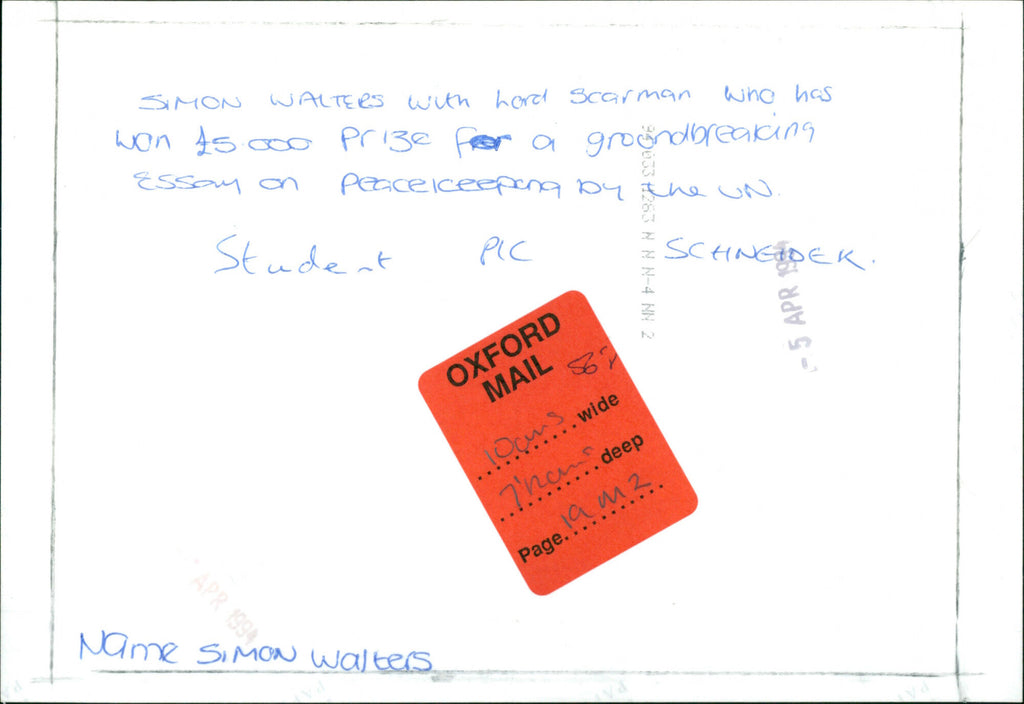 SIMON WALTERS with Lord Scarman who has
won £5.000 Prize for a groundbreaking
Essay on Peacekeeping by the UN.
Student PIC SCHNEIDER.
- 5 APR 1994
OXFORD
MAIL 56%
10cms wide
deep
Page 19 M2
APR 1994
Name SIMON Walters